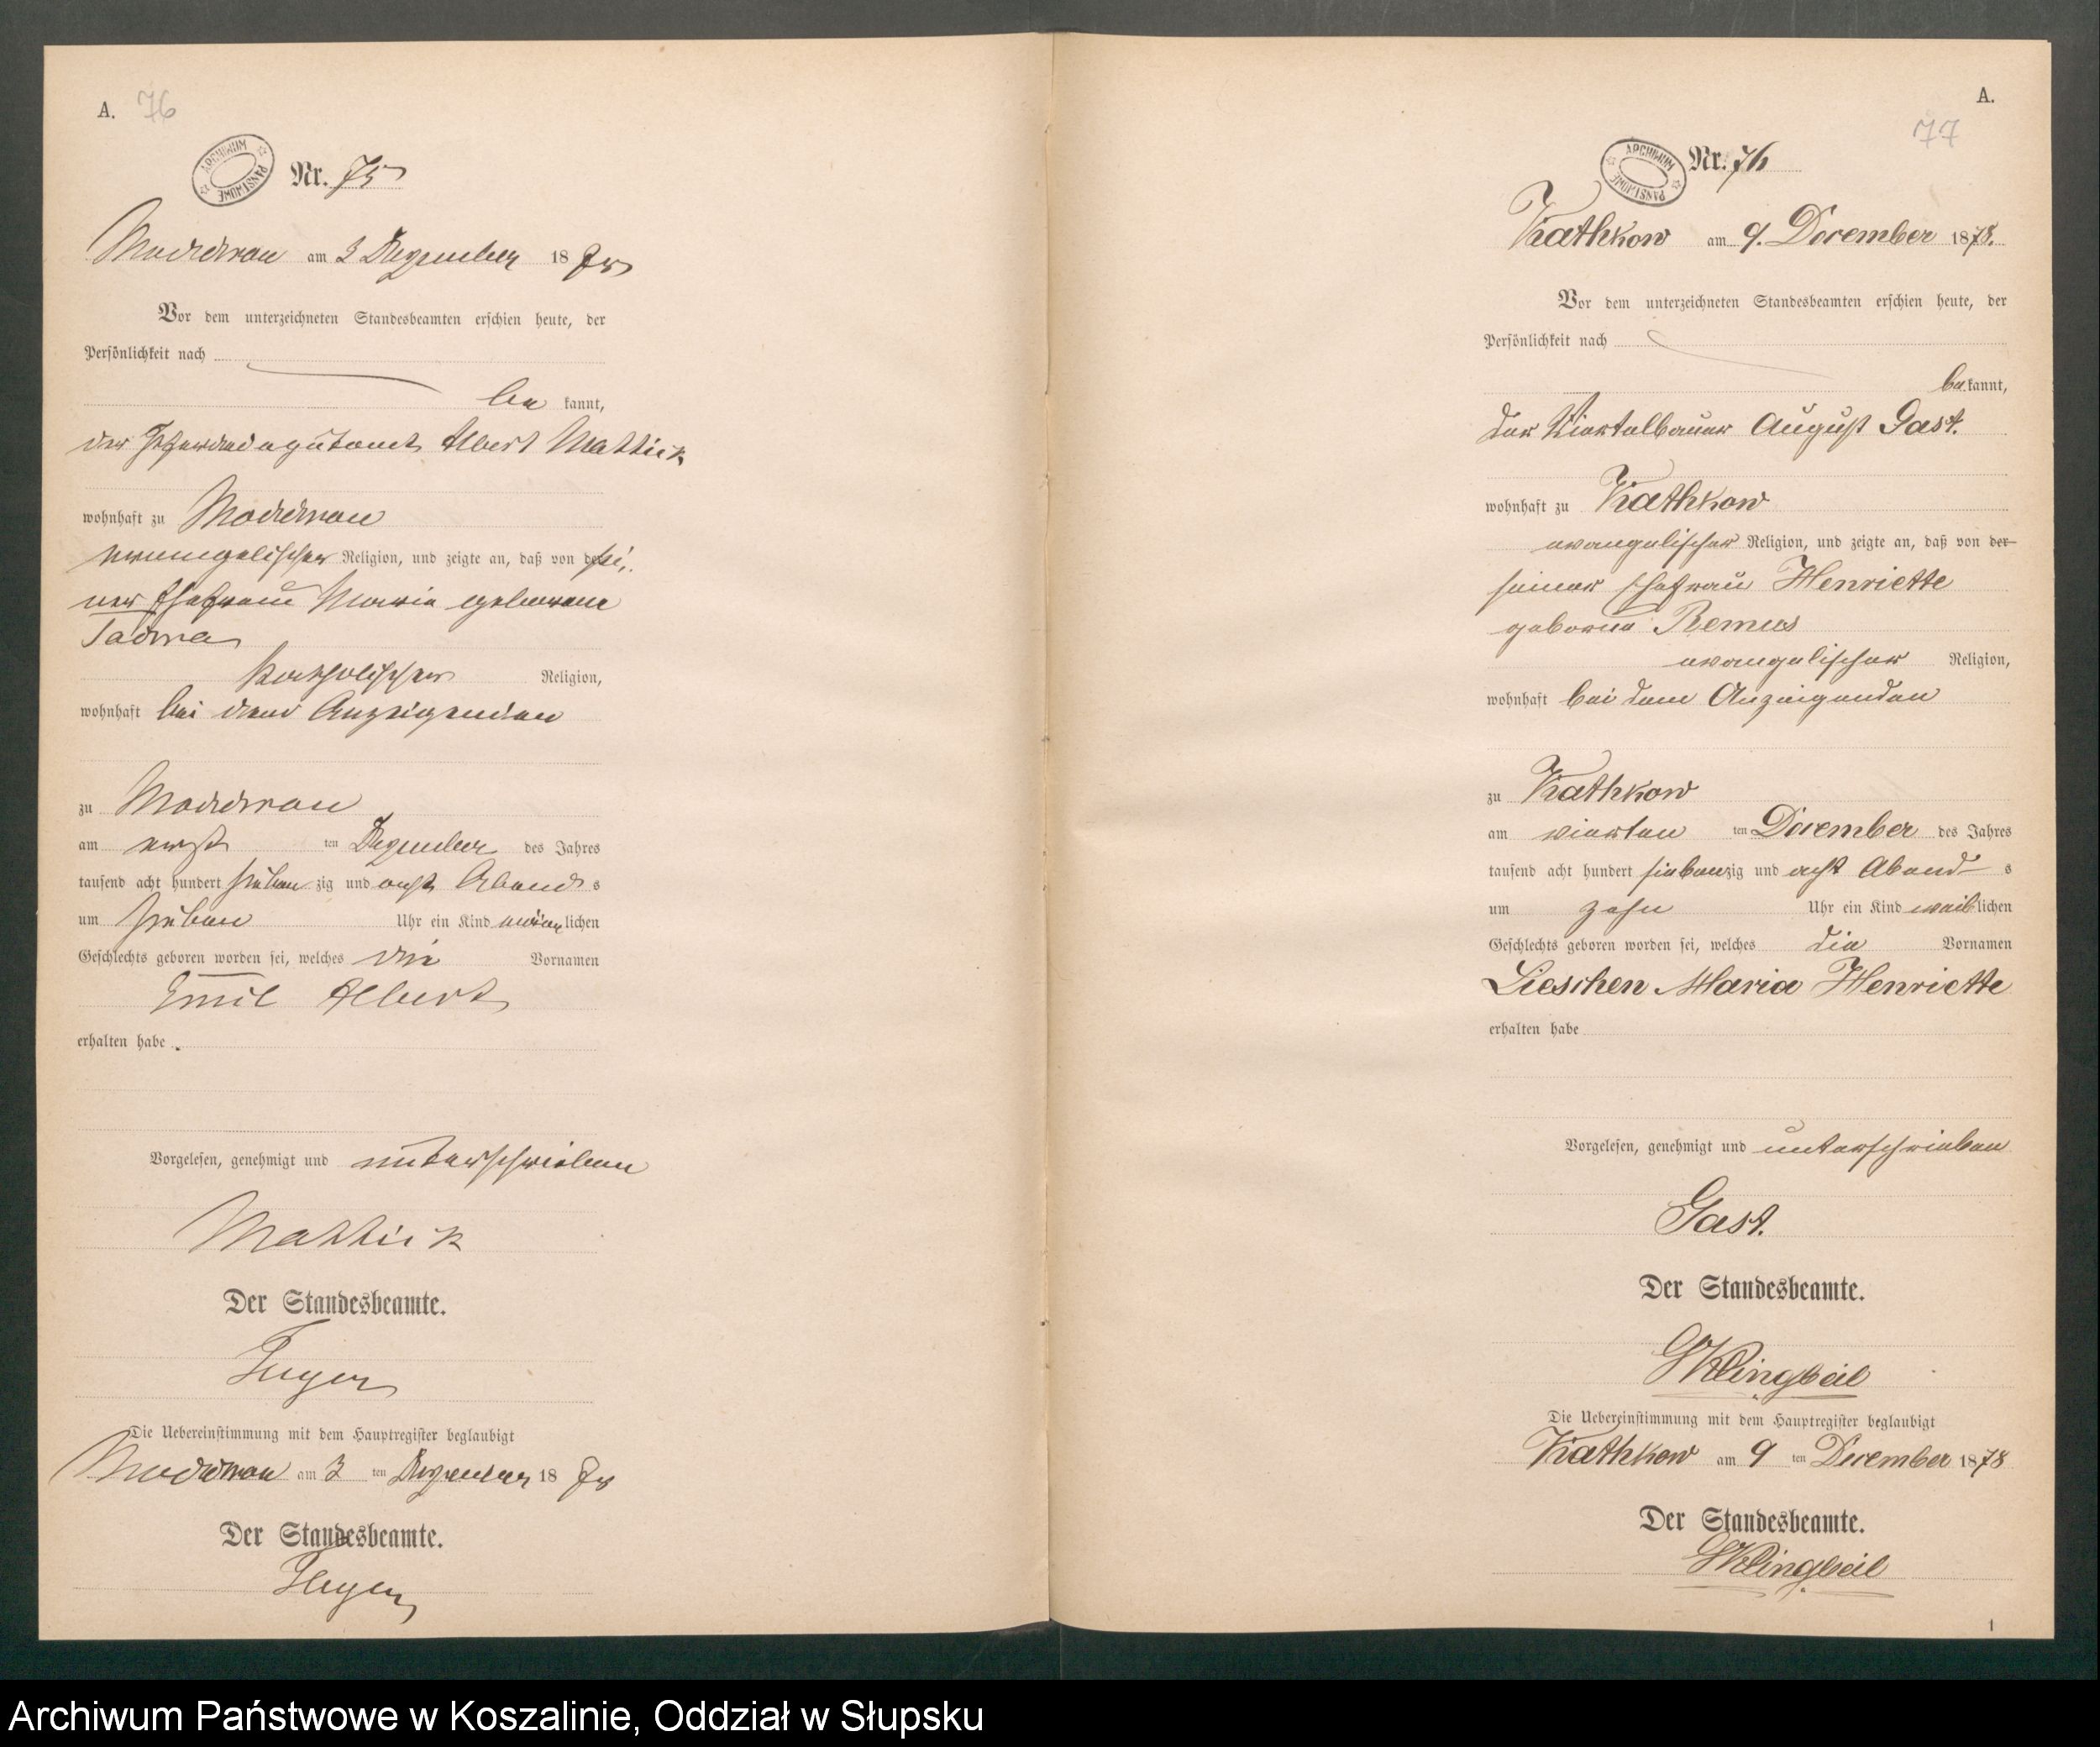 A. 76
ARCHIWUM PAŃSTWOWE
Nr. 75
Moddrow am 3 Dezember 1878
Vor dem unterzeichneten Standesbeamten erschien heute, der
Persönlichkeit nach
be kannt,
der Albert Mattick
wohnhaft zu Moddrow
evangelischer Religion, und zeigte an, daß von der sei-
ner Ehefrau Maria geborene
katholischer Religion,
wohnhaft bei dem Anzeigenden
zu Moddrow
am erst ten Dezember des Jahres
tausend acht hundert sieben zig und acht Abends
um sieben Uhr ein Kind männlichen
Geschlechts geboren worden sei, welches die Vornamen
Emil Albert
erhalten habe.
Vorgelesen, genehmigt und unterschrieben
Mattick
Der Standesbeamte.
Die Uebereinstimmung mit dem Hauptregister beglaubigt
Moddrow am 3 ten Dezember 1878
Der Standesbeamte.
A.
77
ARCHIWUM PAŃSTWOWE
Nr. 76
Kathkow am 9. December 1878.
Vor dem unterzeichneten Standesbeamten erschien heute, der
Persönlichkeit nach
be kannt,
der Viertelbauer August Gast.
wohnhaft zu Kathkow
evangelischer Religion, und zeigte an, daß von der
seiner Ehefrau Henriette
geborene Remus
evangelischer Religion,
wohnhaft bei dem Anzeigenden
zu Kathkow
am vierten ten December des Jahres
tausend acht hundert siebenzig und acht Abend s
um zehn Uhr ein Kind weiblichen
Geschlechts geboren worden sei, welches die Vornamen
Lieschen Maria Henriette
erhalten habe
Vorgelesen, genehmigt und unterschrieben
Gast.
Der Standesbeamte.
Klingbeil
Die Uebereinstimmung mit dem Hauptregister beglaubigt
Kathkow am 9 ten December 1878
Der Standesbeamte.
Klingbeil
1
Archiwum Państwowe w Koszalinie, Oddział w Słupsku